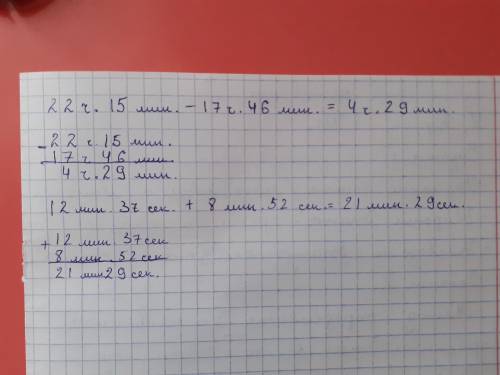 22 ч. 15 мин. - 17 ч. 46 мин. = 4 ч. 29 мин.
- 22 ч. 15 мин.
17 ч 46 мин
4 ч. 29 мин.
12 мин. 37 сек. + 8 мин. 52 сек = 21 мин. 29 сек.
+ 12 мин. 37 сек
8 мин. 52 сек
21 мин 29 сек.